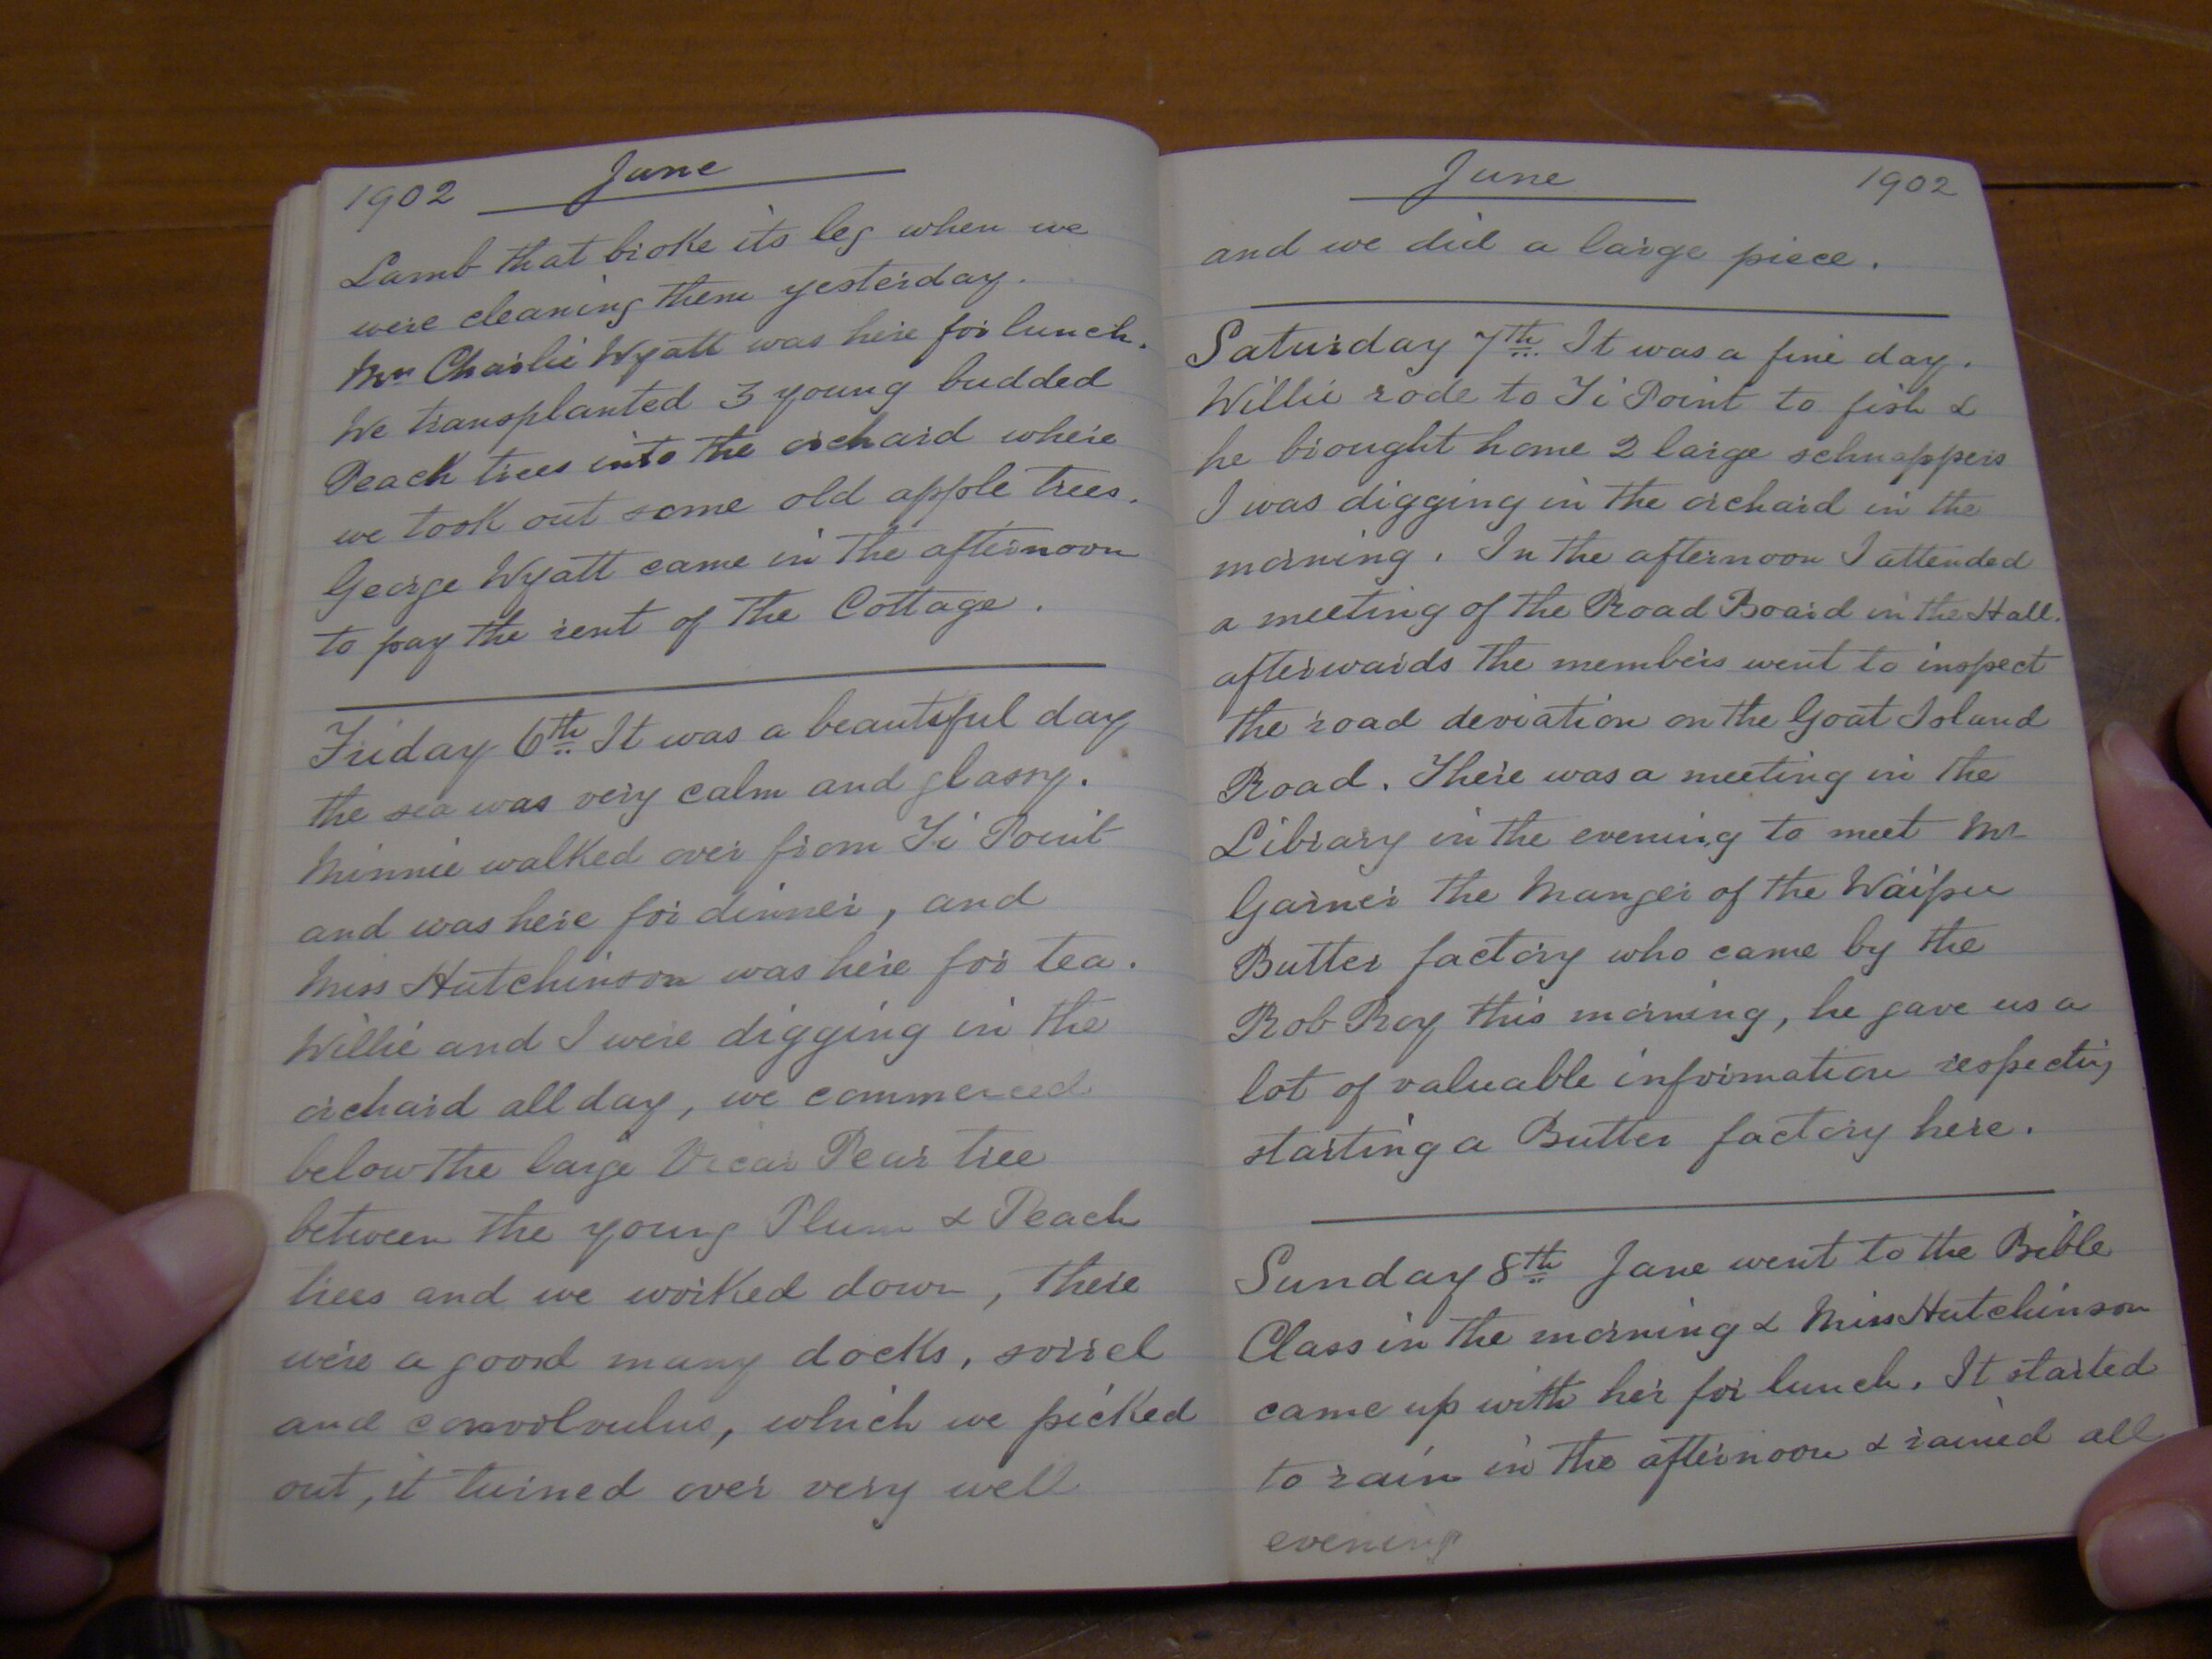 1902 June
Lamb that broke its leg when we
were cleaning them yesterday.
Mr Charlie Wyatt was here for lunch.
We transplanted 3 young budded
Peach trees into the orchard where
we took out some old apple trees.
George Wyatt came in the afternoon
to pay the rent of the Cottage.
Friday 6th It was a beautiful day
the sea was very calm and glassy.
Minnie walked over from Ti Point
and was here for dinner, and
Miss Hutchinson was here for tea.
Willie and I were digging in the
orchard all day, we commenced
below the large Vicar Pear tree
between the young Plum & Peach
trees and we worked down, there
were a good many docks, sorrel
and convolvulus, which we picked
out, it turned over very well
June 1902
and we did a large piece.
Saturday 7th It was a fine day.
Willie rode to Ti Point to fish &
he brought home 2 large schnappers
I was digging in the orchard in the
morning. In the afternoon I attended
a meeting of the Road Board in the Hall.
afterwards the members went to inspect
the road deviation on the Goat Island
Road. There was a meeting in the
Library in the evening to meet Mr
Garner the Manger of the Waipu
Butter factory who came by the
Rob Roy this morning, he gave us a
lot of valuable information respecting
starting a Butter factory here.
Sunday 8th Jane went to the Bible
Class in the morning & Miss Hutchinson
came up with her for lunch. It started
to rain in the afternoon & rained all
evening